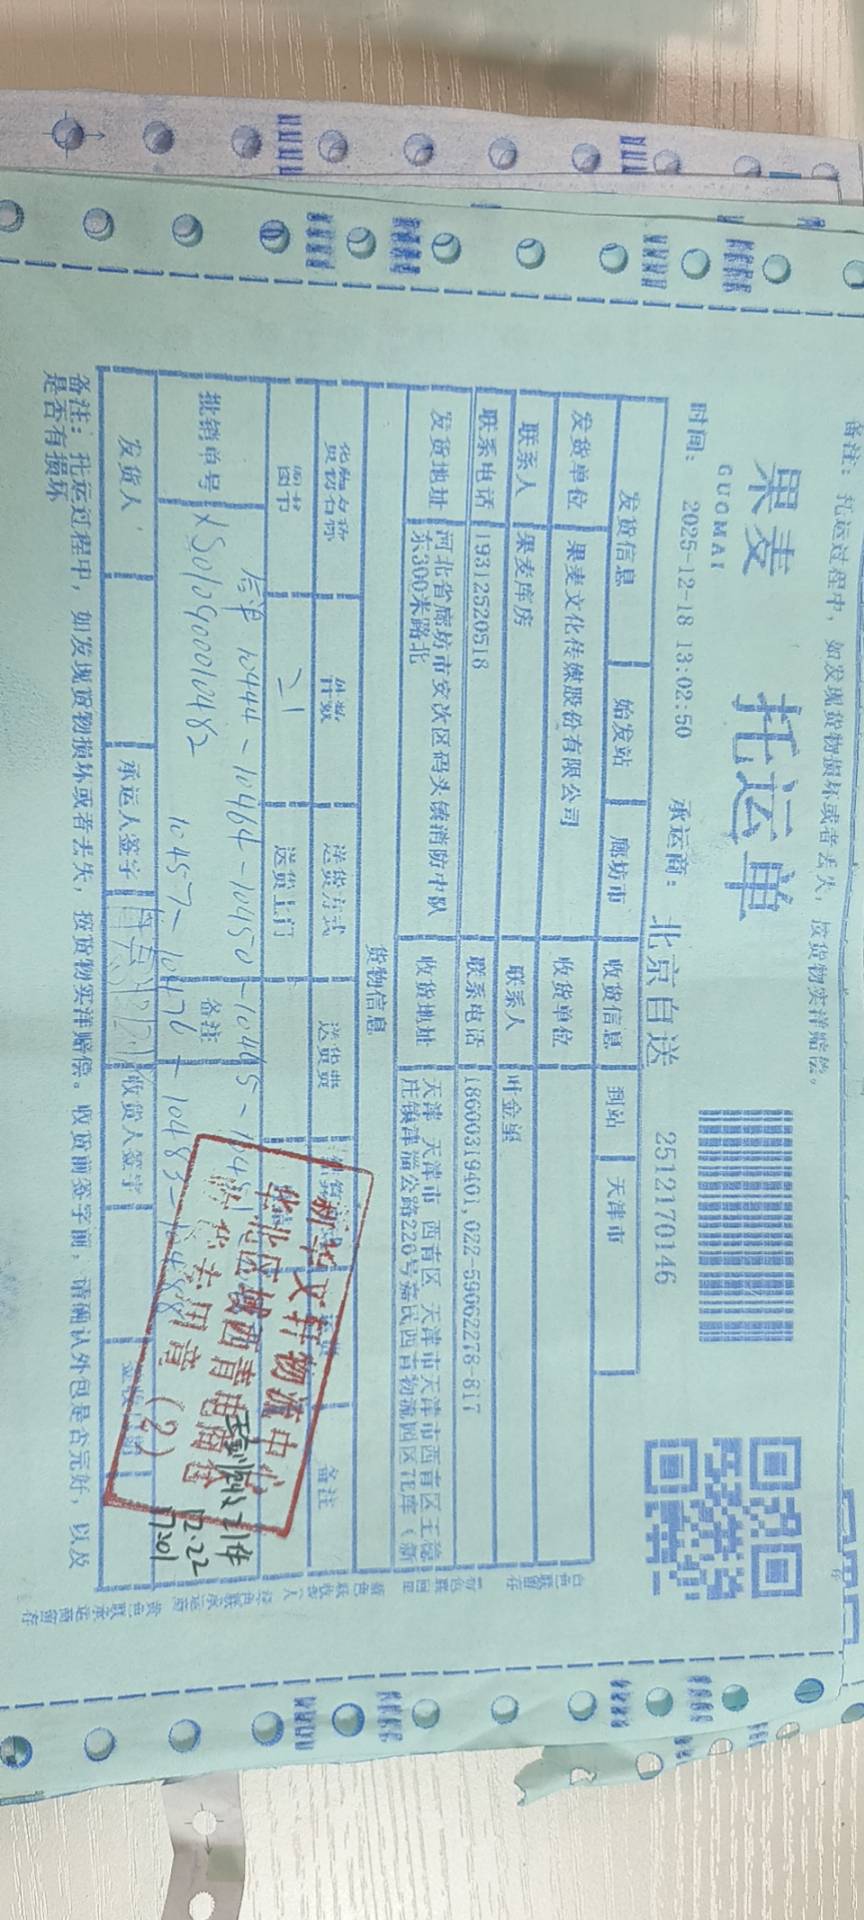 备注：托运过程中，如发现货物损坏或者丢失，按货物实洋赔偿。
果麦 托运单
GUOMAI
时间： 2025-12-18 13:02:50 承运商： 北京自送 2512170146
发货信息 始发站 廊坊市 收货信息 到站 天津市
发货单位 果麦文化传媒股份有限公司 收货单位
联系人 果麦库房 联系人 叶金玺
联系电话 19312520518 联系电话 18600319401,022-59062278-817
发货地址 河北省廊坊市安次区码头镇消防中队东300米路北 收货地址 天津 天津市 西青区 天津市天津市西青区王稳庄镇津淄公路226号嘉民西青物流园区
货物信息
货物名称 件数 送货方式 送货费 备注
图书 21 送货上门
签单 10444-10464-10450-10465-
批销单号 XS01090010482 备注
10457-10476-10483-10488
发货人 承运人签字 收货人签字
备注：托运过程中，如发现货物损坏或者丢失，按货物实洋赔偿。收货前签字前，请确认外包是否完好，以及
是否有损坏
新华文轩物流中心
华北区域西青电商仓
收货专用章（2）
21件
12.22
17:01